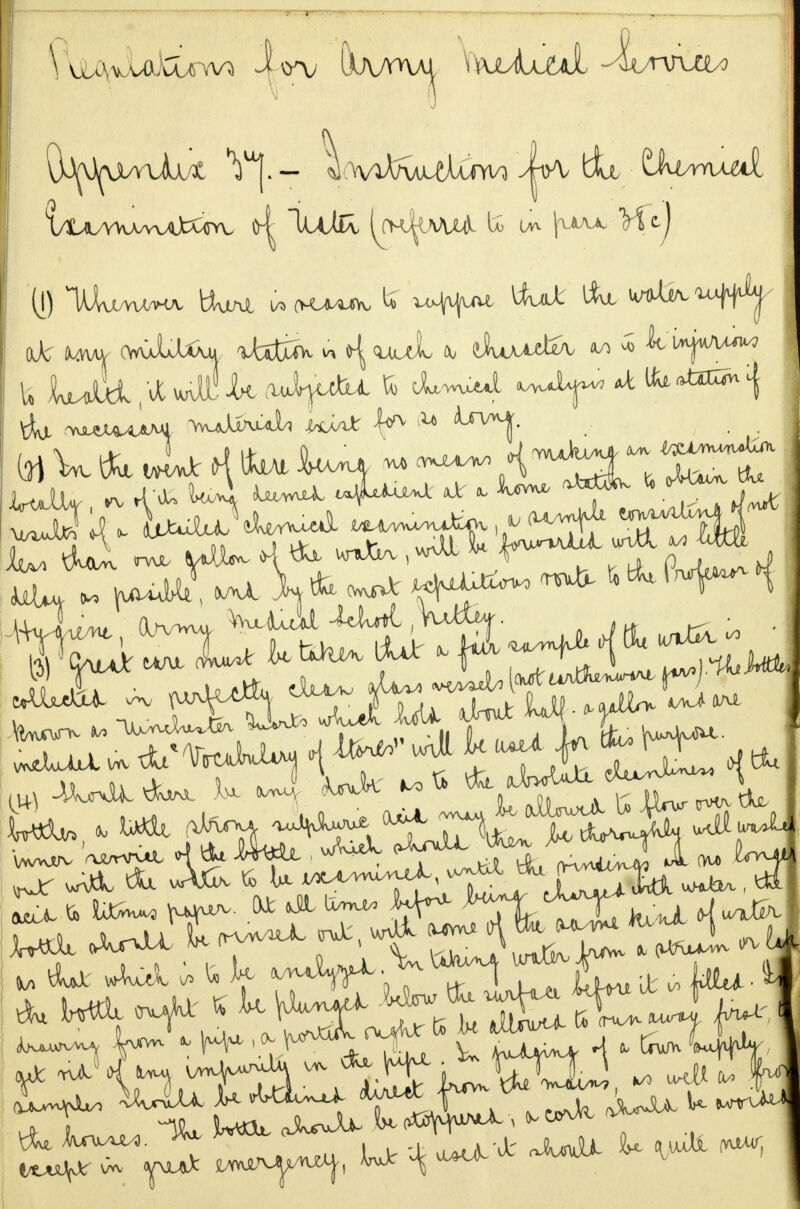 Regulations for Army Medical Services
Appendix 37. — Instructions for the Chemical
Examination of Water (referred to in para
(1) Whenever there is reason to suppose that the water supply
at any military station is of such a character as to be injurious
to health, it will be subjected to chemical analysis at the station if
the necessary materials exist for so doing.
(2) In the event of there being no means of making an examination
locally, or of its being deemed expedient at a home station to obtain the
results of a detailed chemical examination, a sample consisting of not
less than one gallon of the water, will be forwarded with as little
delay as possible, and by the most expeditious route to the Professor of
Hygiene, Army Medical School, Netley.
(3) Great care must be taken that a fair sample of the water is
collected in perfectly clean glass vessels (not earthenware jars). The bottles
known as Winchester Quarts which hold about half. a gallon and are
included in the "Vocabulary of Stores" will be used for this purpose.
(4) Should there be any doubt as to the absolute cleanliness of the
bottles, a little strong sulphuric acid may be allowed to flow over the
inner service of the bottle, which should then be thoroughly well washed
out with the water to be examined, until the rinsings no longer
acid to litmus paper. At all times before being charged with water, the
bottle should be rinsed out, with some of the same kind of water
as that which is to be analyzed. In taking water from a stream or
the bottle ought to be plunged below the surface before it is filled.
drawing from a pipe, a portion ought to be allowed to run away first,
get rid of any impurity in the pipe. In judging of a town supply,
samples should be obtained direct from the mains, as well as from
the houses. The bottle should be stoppered, a cork should be avoided
except in great emergency, but if used it should be quite new,